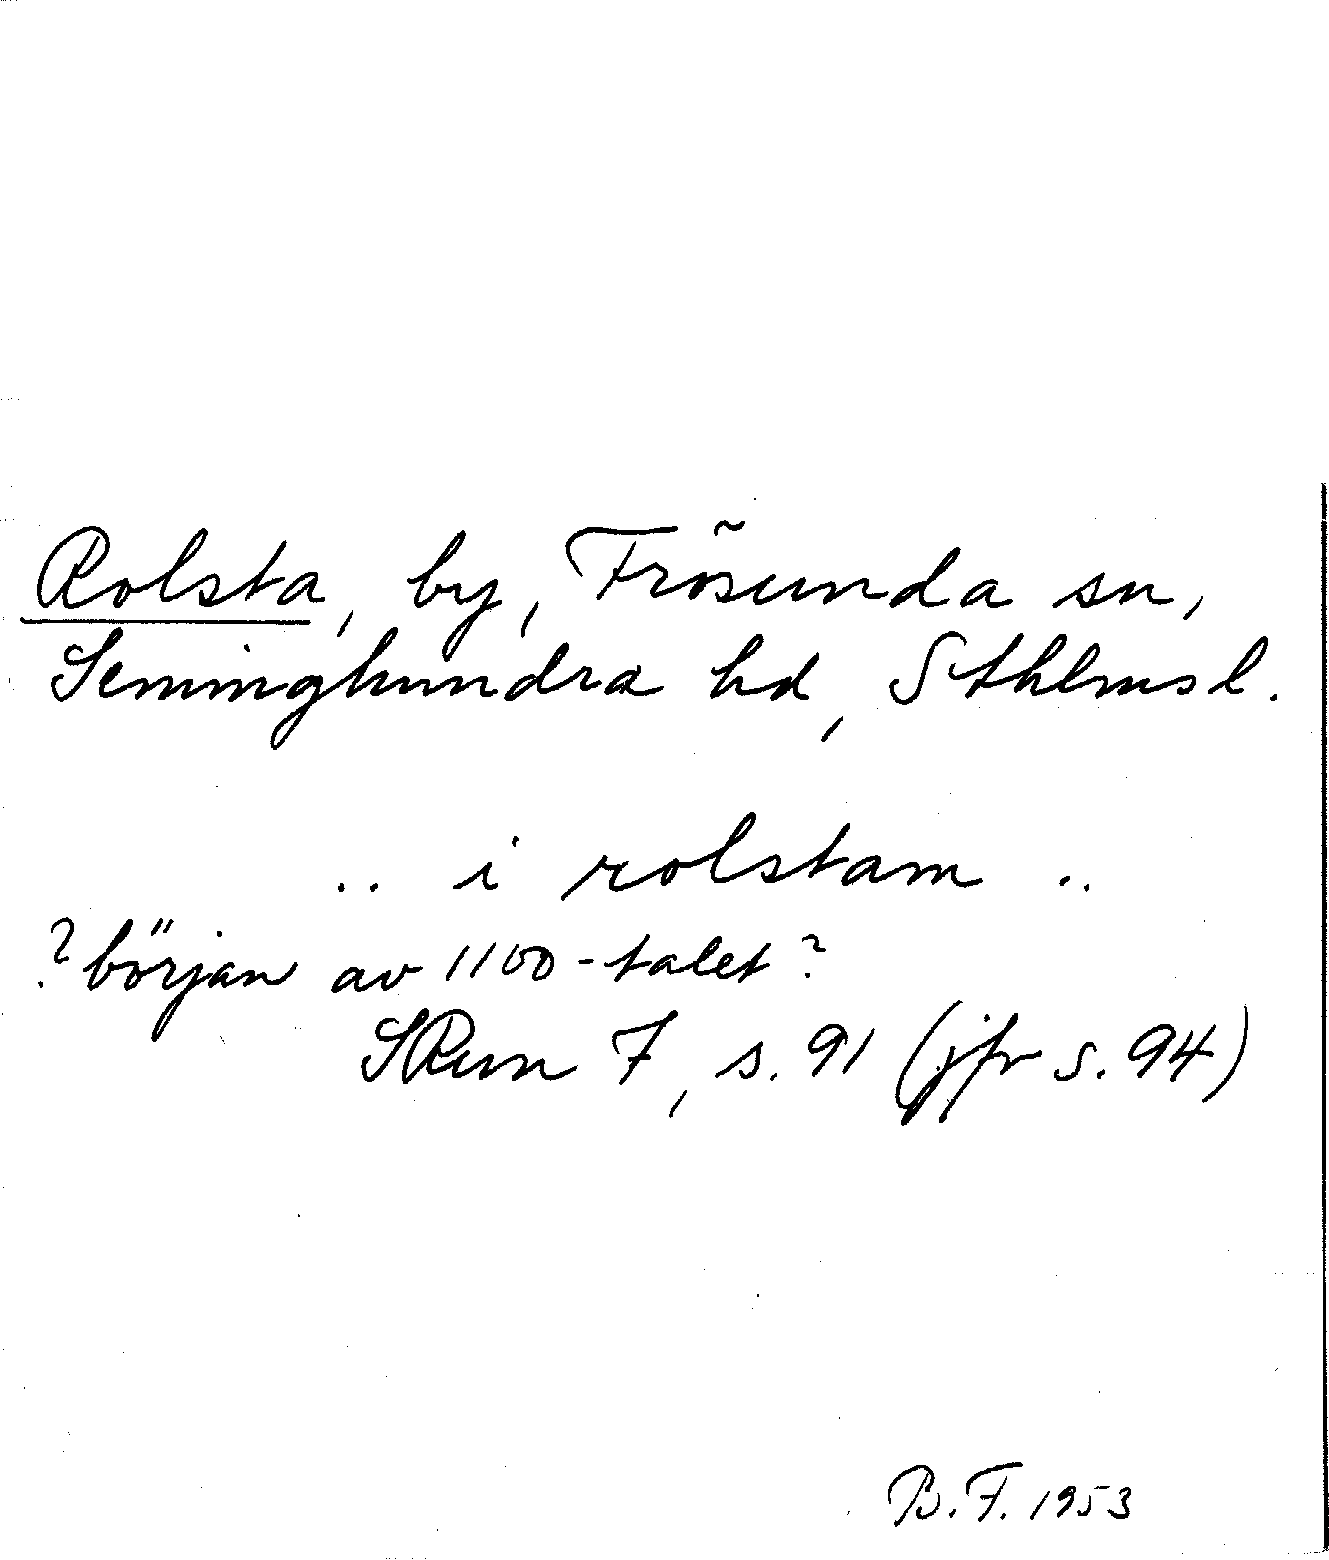 Rolsta, by, Frösunda sn,
Seminghundra hd, Sthlms l.
.. i rolstam ..
? början av 1100-talet ?
SRun 7, s. 91 (jfr s. 94)
B. F. 1953